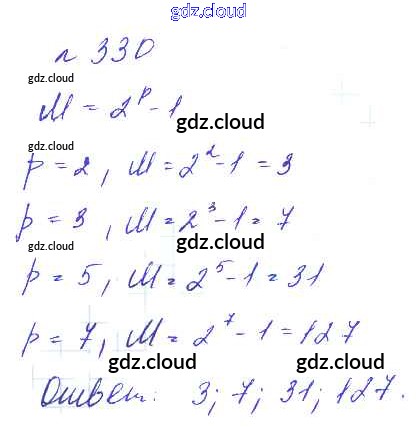 gdz.cloud
n 330
gdz.cloud
M = 2^p - 1
gdz.cloud
gdz.cloud
p = 2, M = 2^2 - 1 = 3
gdz.cloud
p = 3, M = 2^3 - 1 = 7
gdz.cloud
gdz.cloud
p = 5, M = 2^5 - 1 = 31
p = 7, M = 2^7 - 1 = 127
gdz.cloud gdz.cloud
Ответ: 3; 7; 31; 127.
gdz.cloud